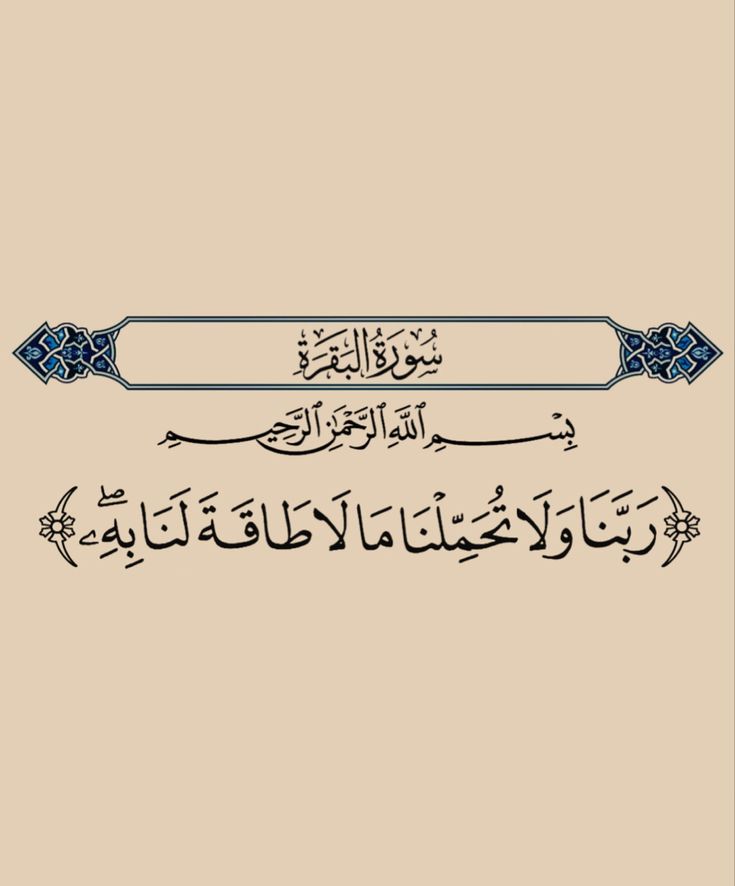 سُورَةُ البَقَرَةِ
بِسْمِ ٱللَّهِ ٱلرَّحْمَٰنِ ٱلرَّحِيمِ
﴿رَبَّنَا وَلَا تُحَمِّلْنَا مَا لَا طَاقَةَ لَنَا بِهِۦۖ﴾